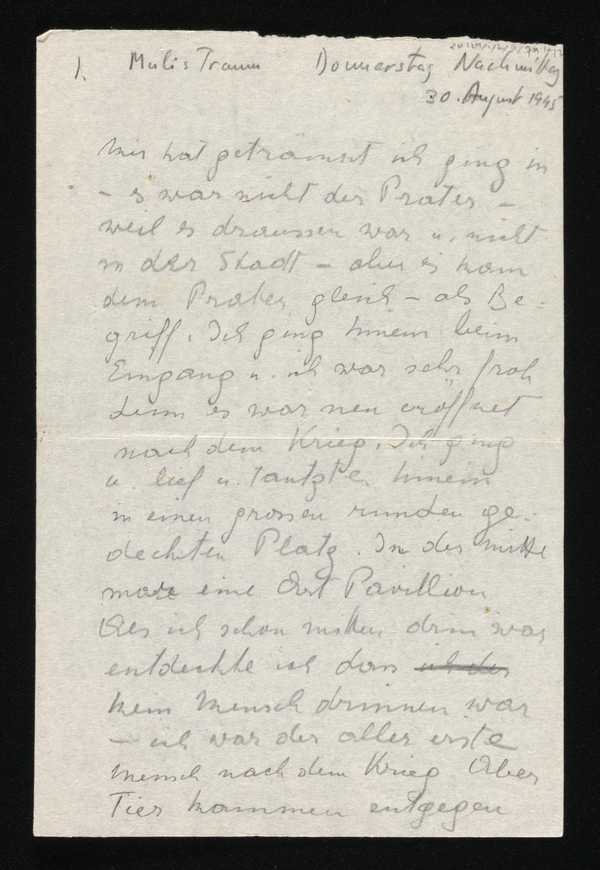 1. Mulis Traum Donnerstag Nachmittag
30. August 1945
Mir hat geträumt ich ging in
– es war nicht der Prater –
weil es draussen war u. nicht
in der Stadt – aber es kam
dem Prater gleich – als Be-
griff. Ich ging hinein beim
Eingang u. ich war sehr froh
denn es war neu eröffnet
nach dem Krieg. Ich ging
u. lief u. tantzte hinein
in einen grossen runden ge-
deckten Platz. In der mitte
eine Art Pavillion
Als ich schon mitten drin war
entdeckte ich dass ich der
kein Mensch drinnen war
– ich war der aller erste
Mensch nach dem Krieg Aber
Tier kommen entgegen